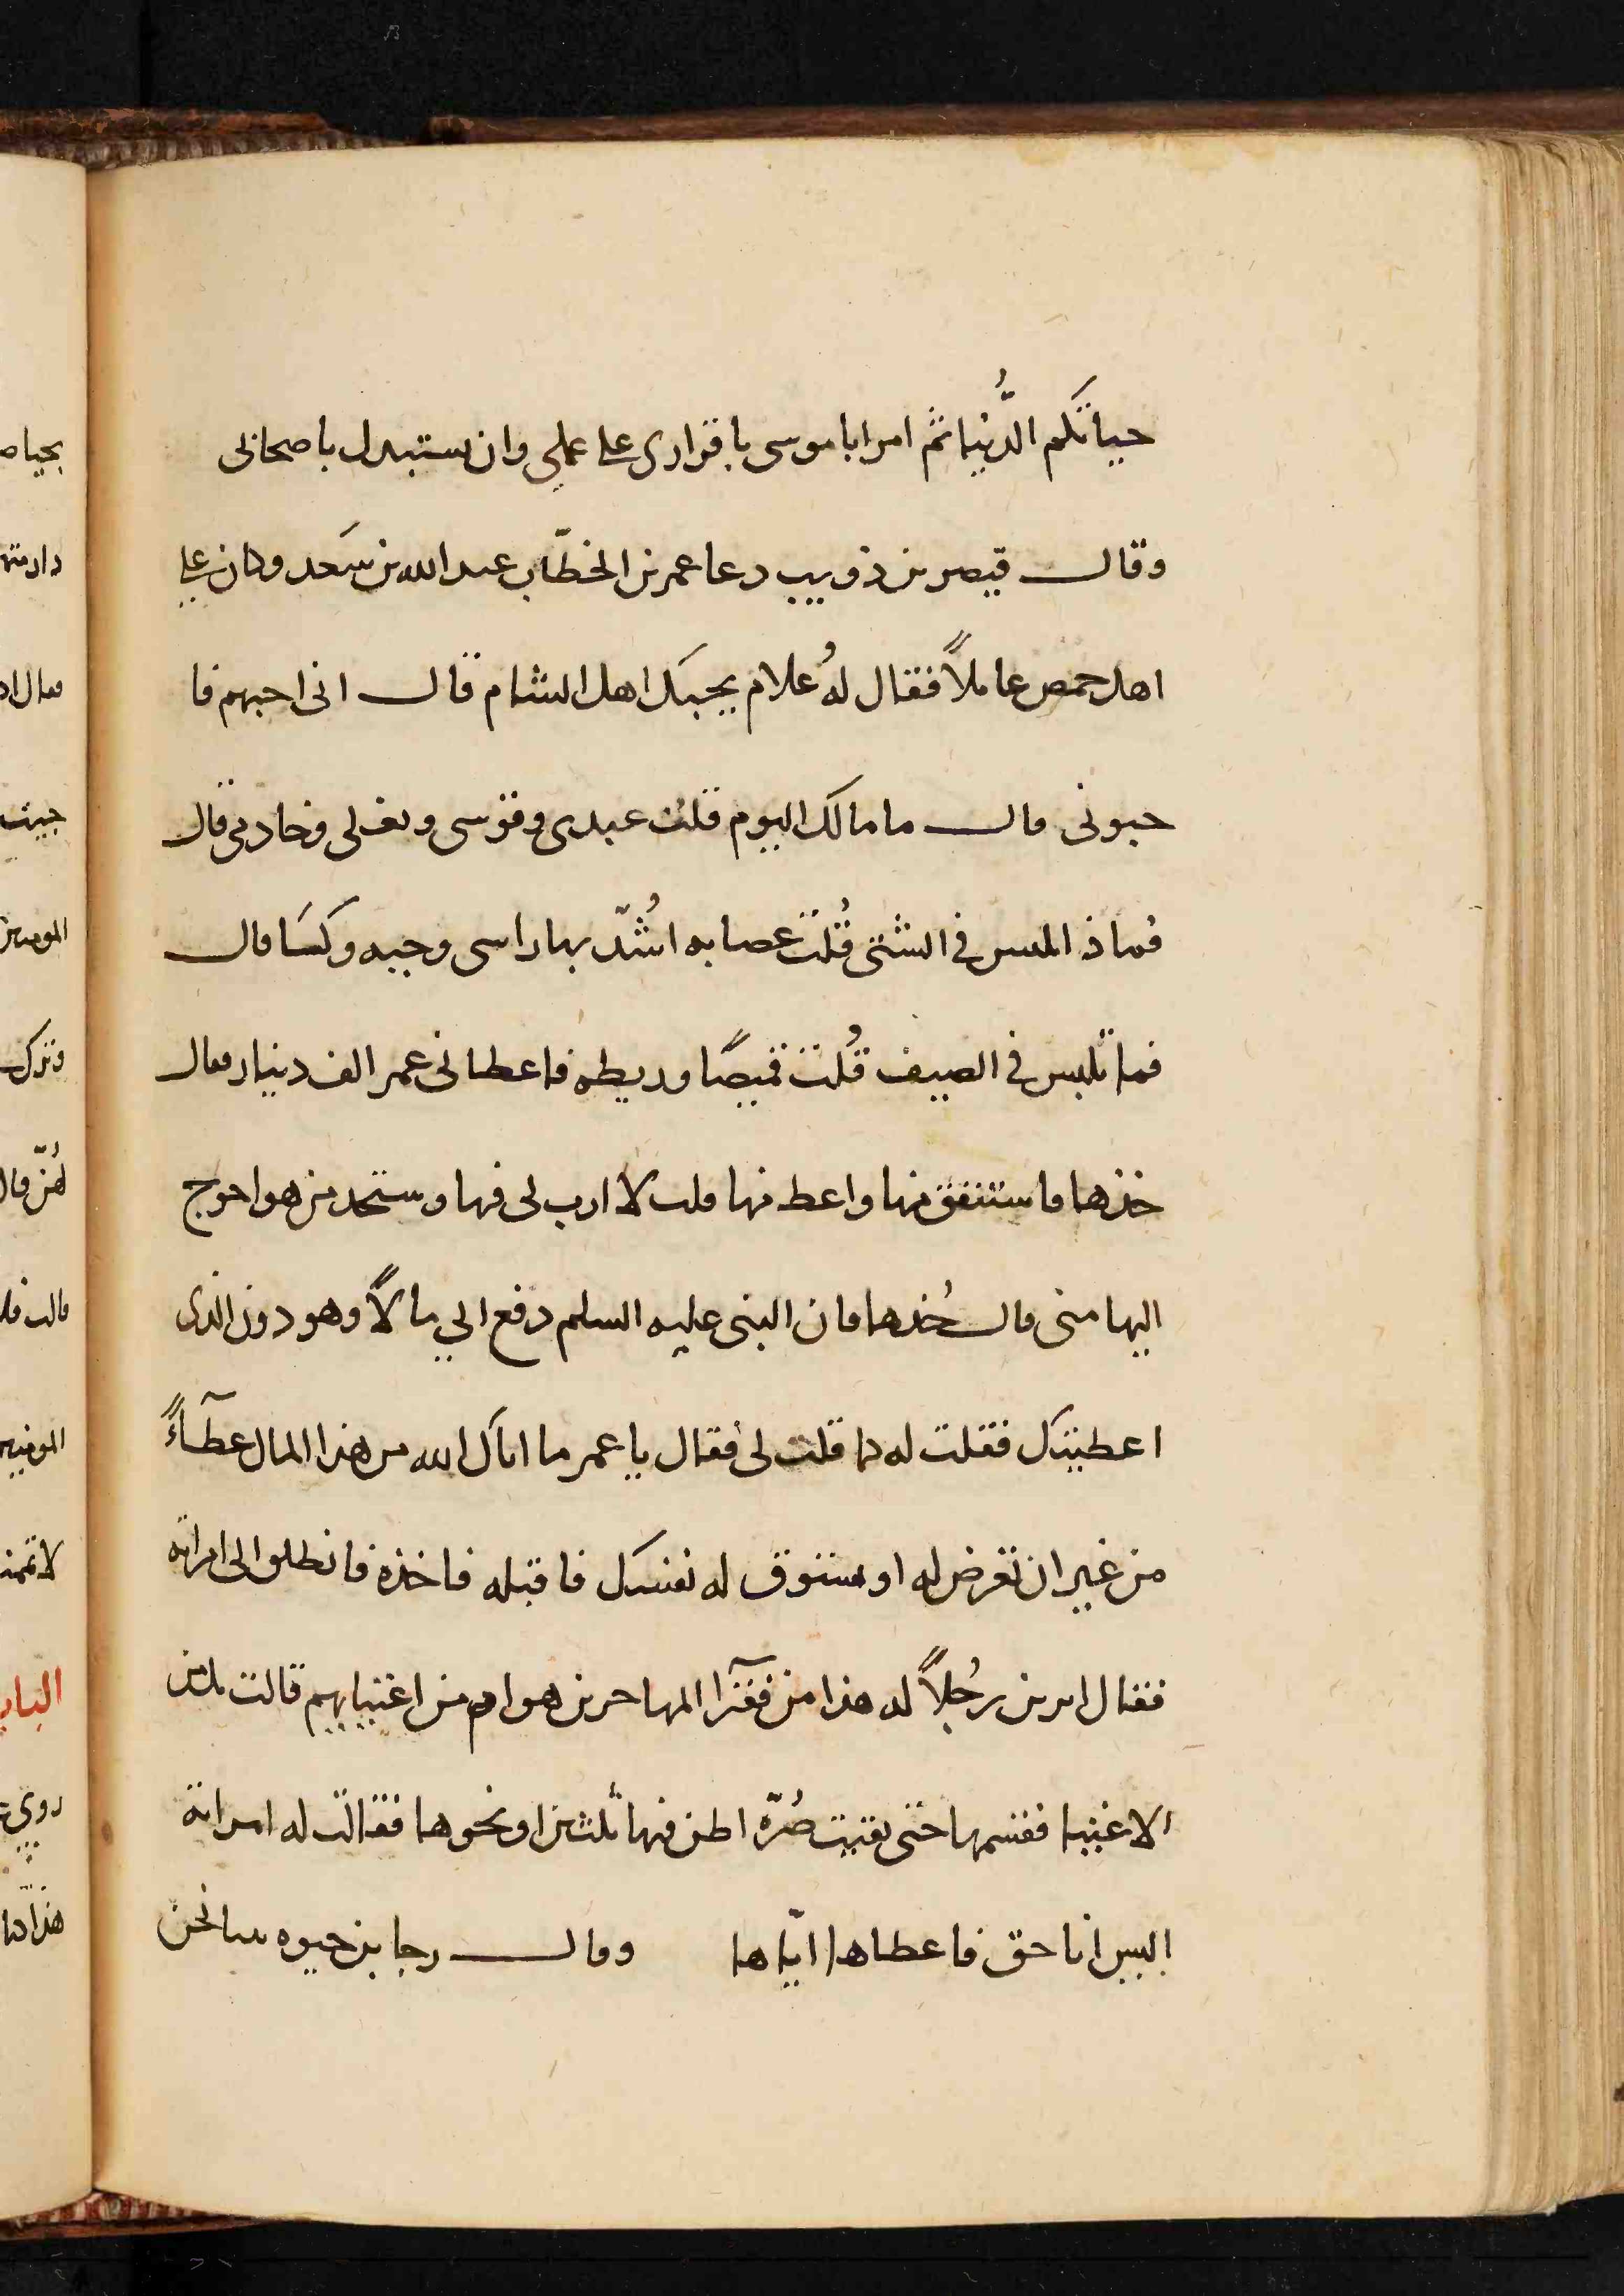 حياتكم الدُّنيا ثم امر ابا موسى باقراري على عملي وان يستبدل باصحابي
وقال قبيصر بن ذويب دعا عمر بن الخطّاب عبد الله بن سَعد وكان على
اهل حمص عاملاً فقال لهُ علام يحبك اهل الشام قال اني احبهم فا
حبوني قال ما مالك اليوم قلت عبدي وفرسي وبغلي وخادمي قال
فماذ المس في الشتى قُلت عصابه اشُدّ بها راسي وجبه وكسَا قال
فما تلبس في الصيف قُلت قميصًا وريطه فاعطاني عمر الف دينار فقال
خذها فاستنفق منها واعط منها قلت لا ارب لي فيها وستجد من هو احوج
اليها مني قال خُذها فان النبي عليه السلم دفع الي مالاً وهو دون الذي
اعطيتك فقلت له كما قلت لي فقال يا عمر ما اتاك الله من هذا المال عطآءً
من غير ان تعرض له او تتوق له نفسك فاقبله فاخذه فانطلق الى امراته
فقال ارين رجُلاً له هذا من فقرآ المهاجرين هو ام من اغنيايهم قالت بل من
الاغنيا فقسمها حتى بقيت صُرّه اظن فيها ثلثين او نحوها فقالت له امراته
اليس انا حق فاعطاها ايّاها وقال رجا بن حيوه بينا نحن
بحياه
فقال
جيت
المومنين
وترك
لهُنّ قال
قالت فلا
الباب
روي